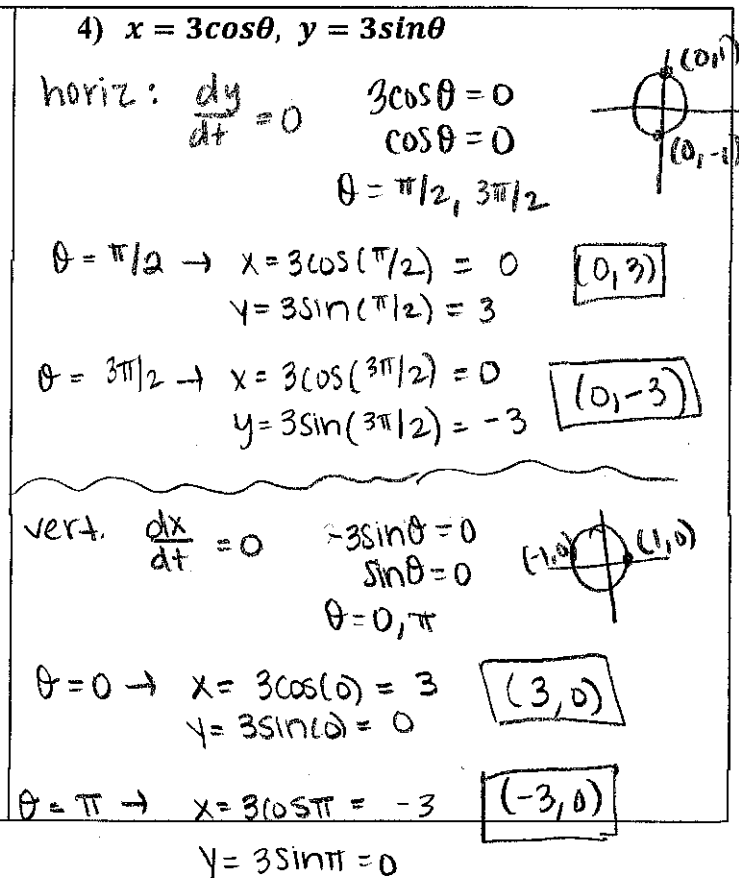 4) x = 3cosθ, y = 3sinθ
horiz: dy/dt = 0 3cosθ = 0
cosθ = 0
θ = π/2, 3π/2
(0,1)
(0,-1)
θ = π/2 → x = 3cos(π/2) = 0 (0,3)
y = 3sin(π/2) = 3
θ = 3π/2 → x = 3cos(3π/2) = 0 (0,-3)
y = 3sin(3π/2) = -3
vert. dx/dt = 0 -3sinθ = 0
sinθ = 0
θ = 0, π
(-1,0) (1,0)
θ = 0 → x = 3cos(0) = 3 (3,0)
y = 3sin(0) = 0
θ = π → x = 3cosπ = -3 (-3,0)
y = 3sinπ = 0